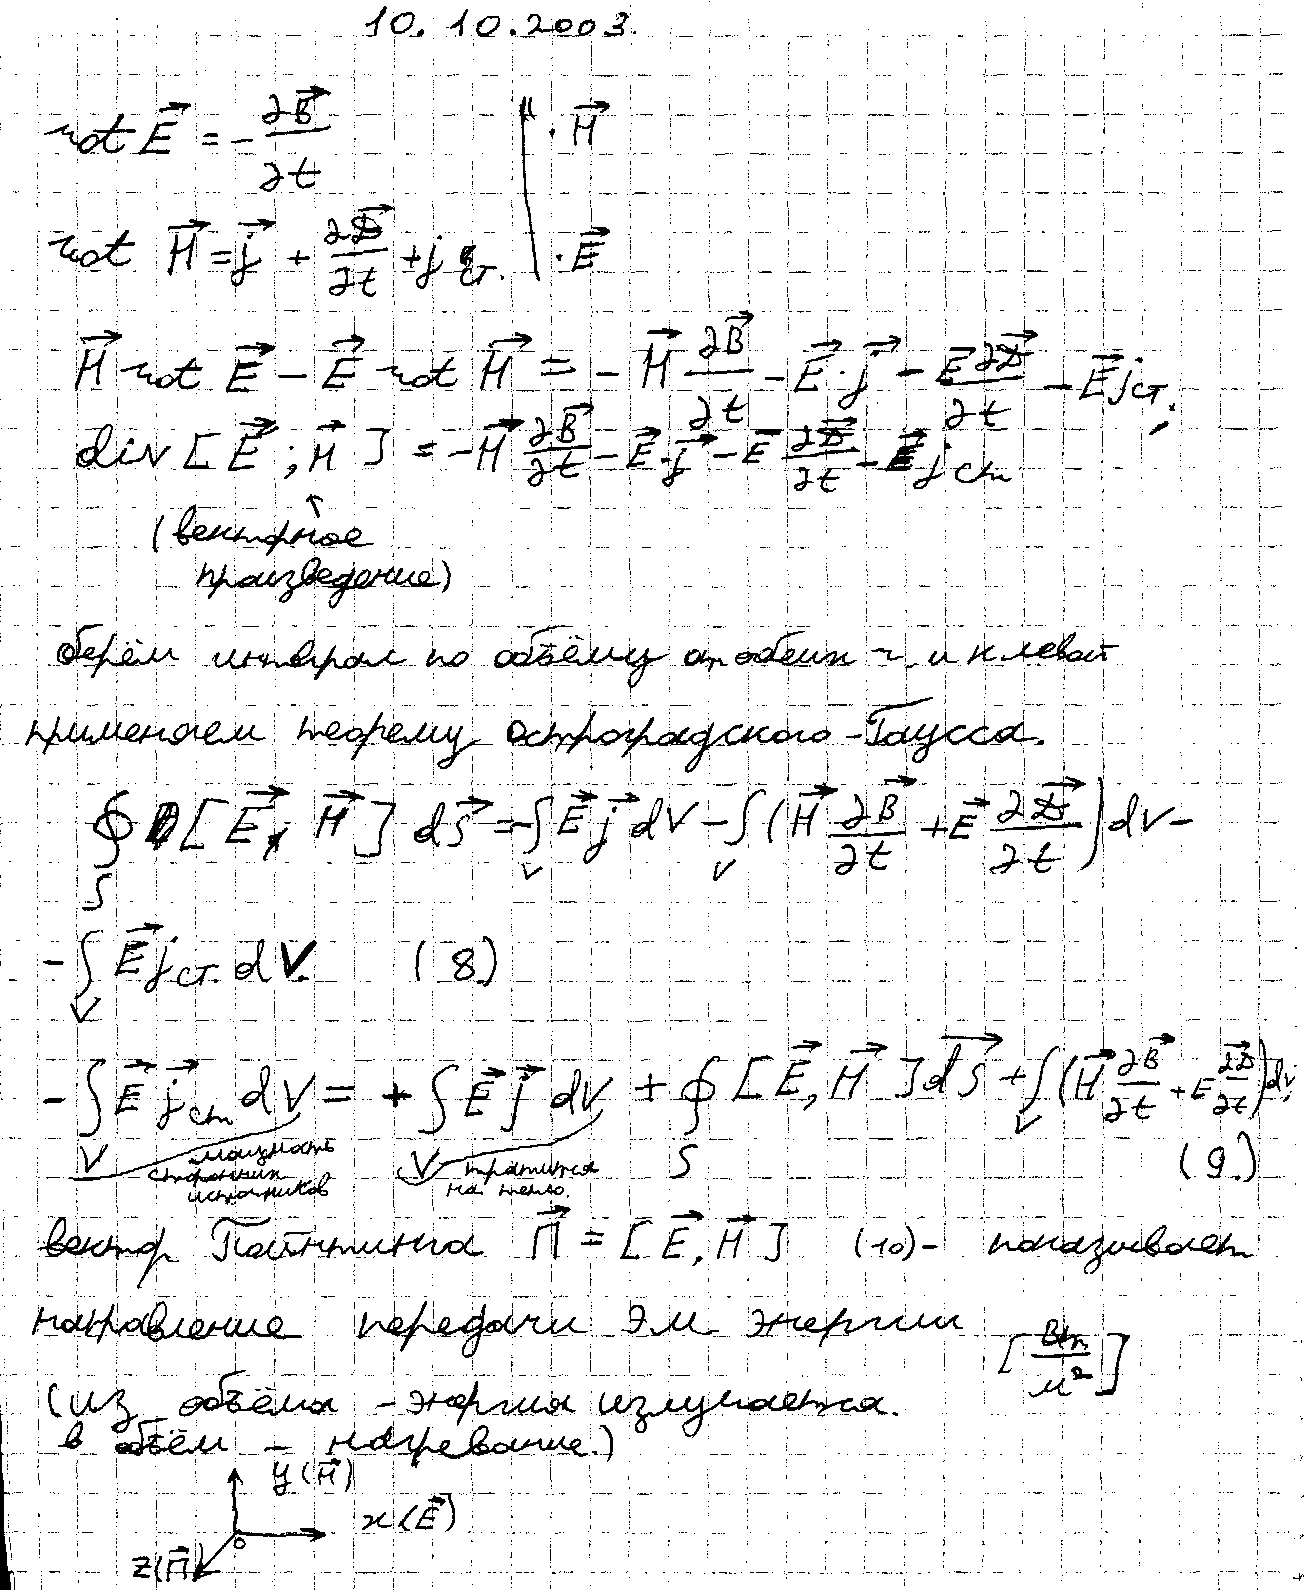 10.10.2003.
rot E⃗ = - ∂B⃗/∂t | · H⃗
rot H⃗ = j⃗ + ∂D⃗/∂t + j ст. | · E⃗
H⃗ rot E⃗ - E⃗ rot H⃗ = - H⃗ ∂B⃗/∂t - E⃗ · j⃗ - E⃗ ∂D⃗/∂t - E⃗ j ст.;
div [E⃗; H⃗] = - H⃗ ∂B⃗/∂t - E⃗ · j⃗ - E⃗ ∂D⃗/∂t - E⃗ j ст
↑
(векторное
произведение)
берём интеграл по объёму от обеих ч. и к левой
применяем теорему Остроградского-Гаусса.
∮S [E⃗, H⃗] dS⃗ = -∫V E⃗ j⃗ dV - ∫V (H⃗ ∂B⃗/∂t + E⃗ ∂D⃗/∂t) dV -
- ∫V E⃗ j ст. dV. (8.)
- ∫V E⃗ j⃗ ст dV = + ∫V E⃗ j⃗ dV + ∮S [E⃗, H⃗] dS⃗ + ∫V (H⃗ ∂B⃗/∂t + E ∂D⃗/∂t) dV,
мощность
сторонних
источников
тратится
на тепло.
(9.)
вектор Пойнтинга П⃗ = [E⃗, H⃗] (10) - показывает
направление передачи эл.м. энергии [Вт/м²]
(из объёма - энергия излучается.
в объём - нагревание.)
y (H⃗)
x (E⃗)
0
z (П⃗)